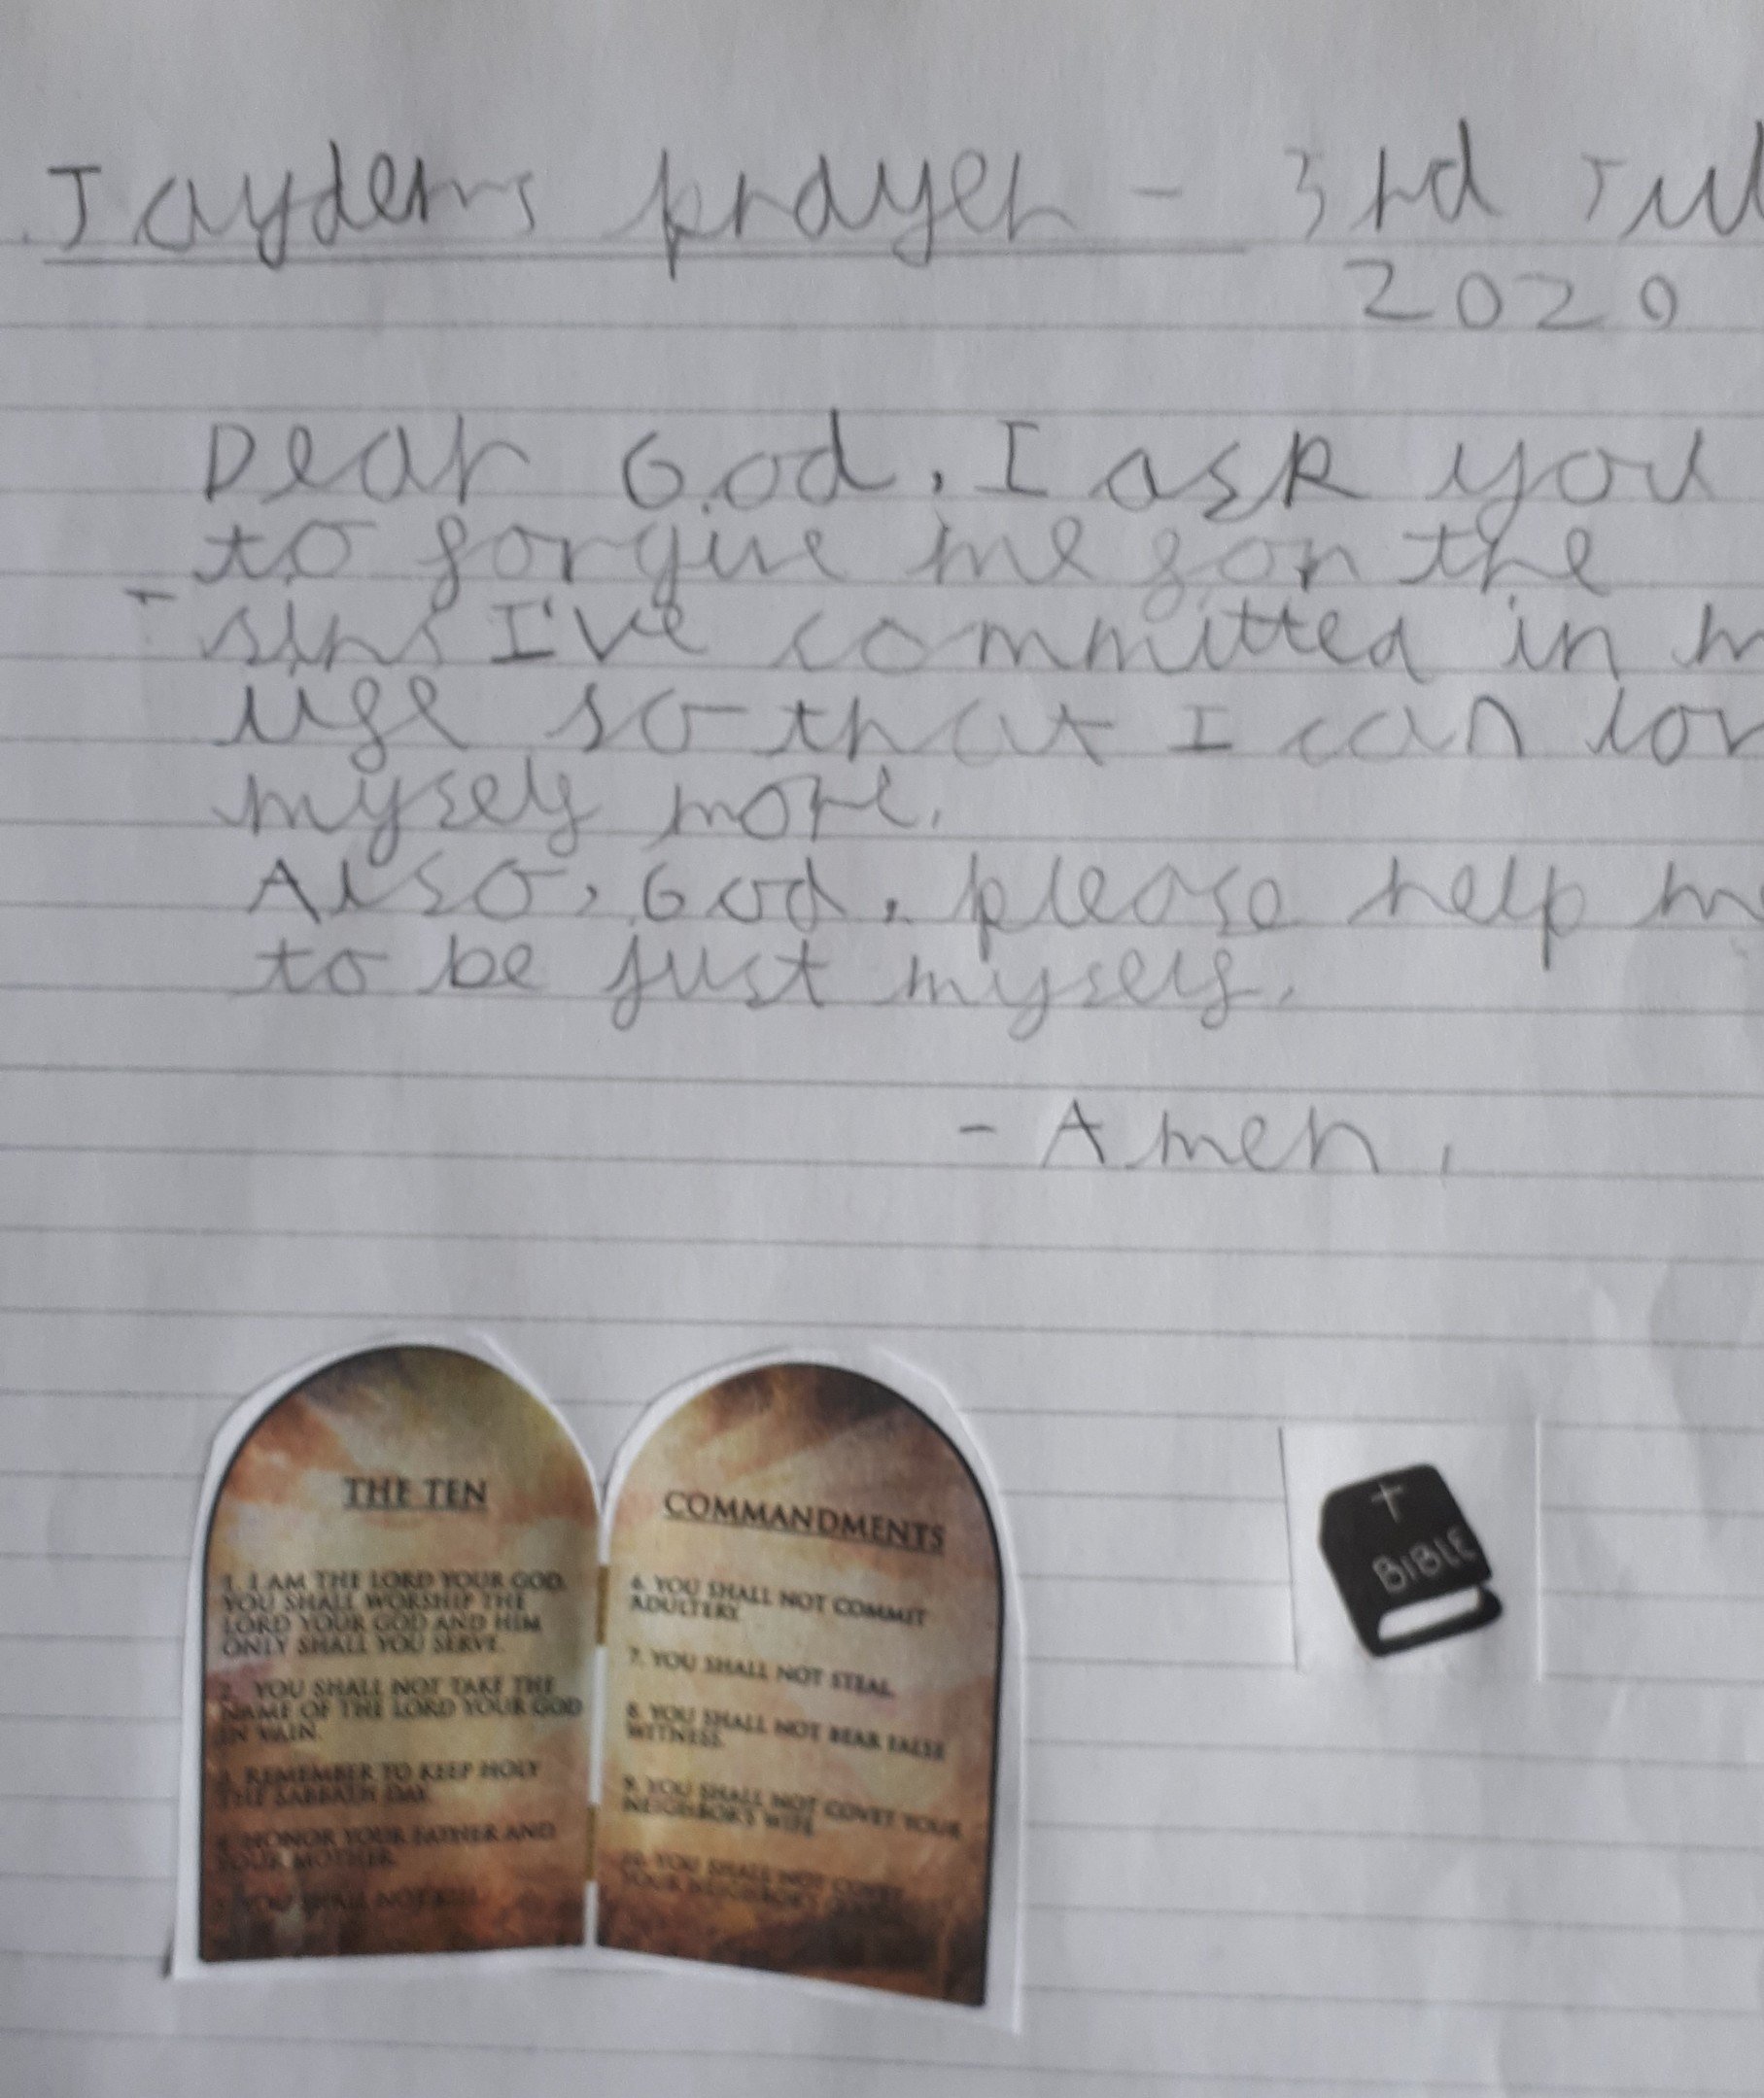 Jaydens prayer - 3rd Jul
2020
Dear God, I ask you
to forgive me for the
sins I've committed in m
life so that I can lov
myself more.
Also, God, please help m
to be just myself.
- Amen.
THE TEN
1. I AM THE LORD YOUR GOD.
YOU SHALL WORSHIP THE
LORD YOUR GOD AND HIM
ONLY SHALL YOU SERVE.
2. YOU SHALL NOT TAKE THE
NAME OF THE LORD YOUR GOD
IN VAIN.
3. REMEMBER TO KEEP HOLY
THE SABBATH DAY.
4. HONOR YOUR FATHER AND
YOUR MOTHER.
5. YOU SHALL NOT KILL.
COMMANDMENTS
6. YOU SHALL NOT COMMIT
ADULTERY.
7. YOU SHALL NOT STEAL.
8. YOU SHALL NOT BEAR FALSE
WITNESS.
9. YOU SHALL NOT COVET YOUR
NEIGHBOR'S WIFE.
10. YOU SHALL NOT COVET
YOUR NEIGHBOR'S
BIBLE